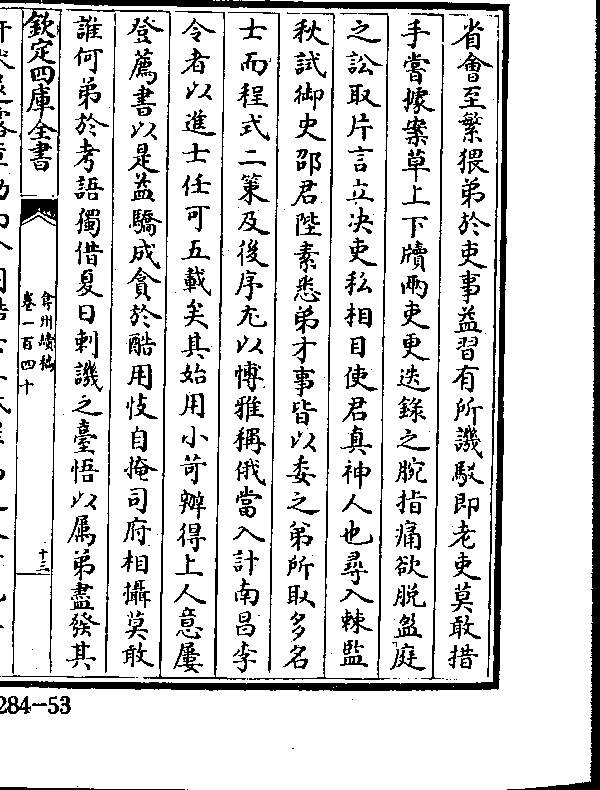 省會至繁猥弟於吏事益習有所譏駁即老吏莫敢措
手嘗據案草上下牘兩吏更迭錄之腕指痛欲脫盈庭
之訟取片言立决吏私相目使君真神人也尋入棘監
秋試御史邵君陛素悉弟才事皆以委之弟所取多名
士而程式二策及後序尤以博雅稱俄當入計南昌李
令者以進士任可五載矣其始用小苛辦得上人意屢
登薦書以是益驕成貪於酷用忮自掩司府相攝莫敢
誰何弟於考語獨借夏日刺譏之臺悟以屬弟盡發其
欽定四庫全書
弇州續稿
卷一百四十
十三
284-53